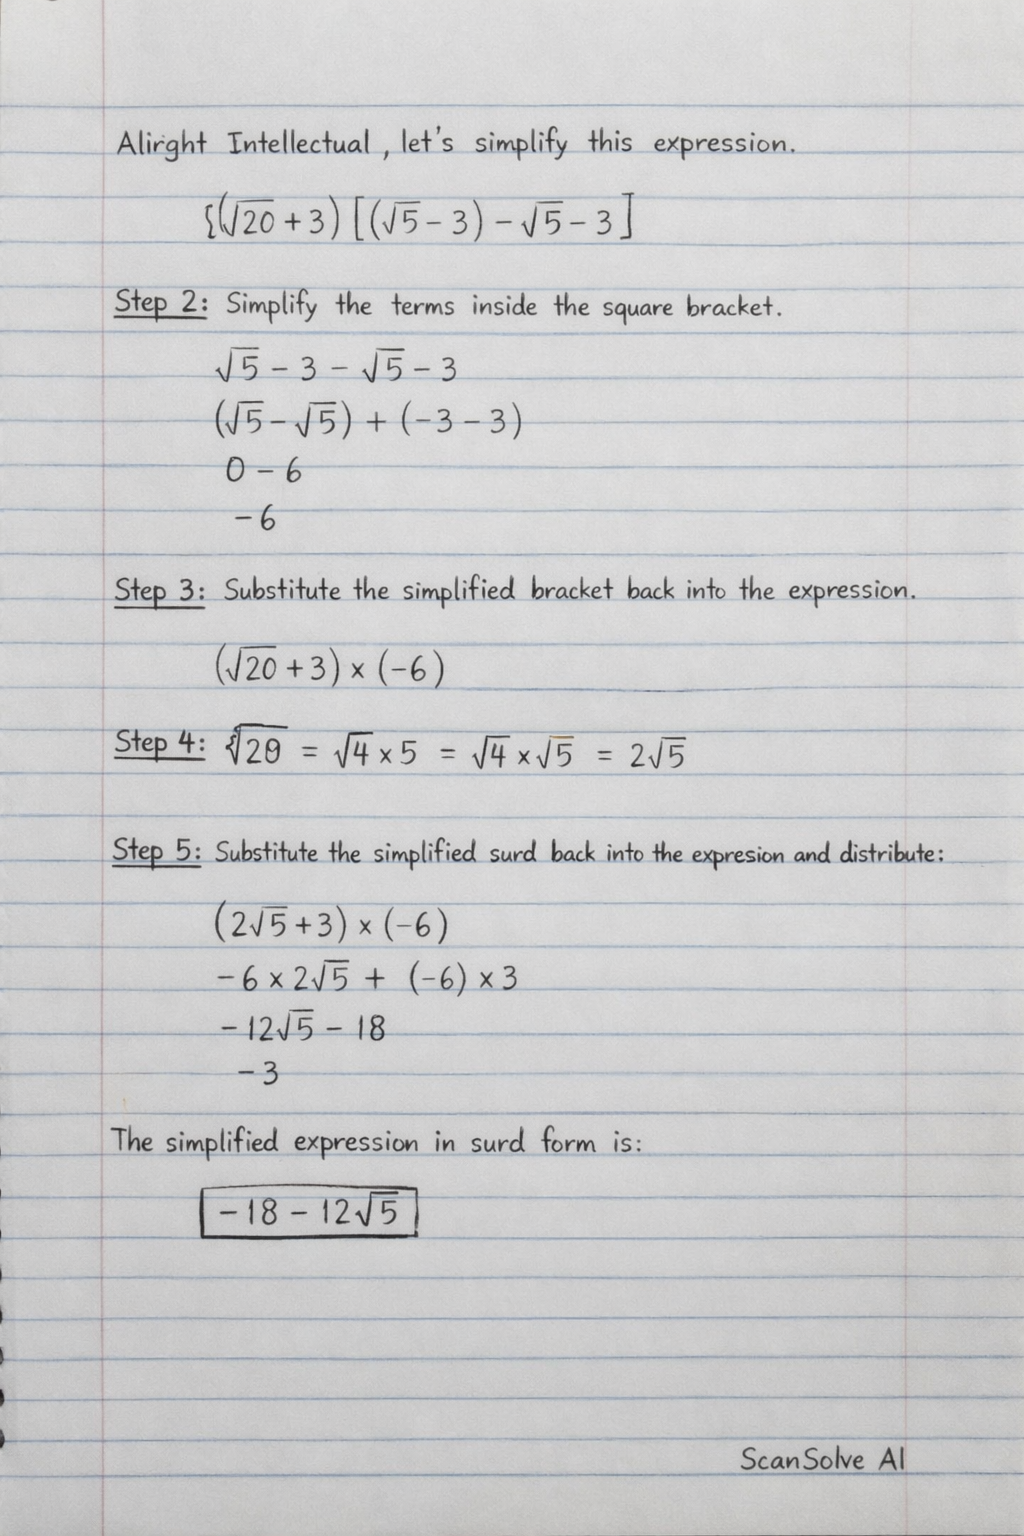 Alirght Intellectual, let's simplify this expression.
{(√20 + 3) [(√5 – 3) – √5 – 3]
Step 2: Simplify the terms inside the square bracket.
√5 – 3 – √5 – 3
(√5 – √5) + (–3 – 3)
0 – 6
–6
Step 3: Substitute the simplified bracket back into the expression.
(√20 + 3) × (–6)
Step 4: √20 = √4 × 5 = √4 × √5 = 2√5
Step 5: Substitute the simplified surd back into the expresion and distribute:
(2√5 + 3) × (–6)
–6 × 2√5 + (–6) × 3
–12√5 – 18
–3
The simplified expression in surd form is:
–18 – 12√5
ScanSolve AI